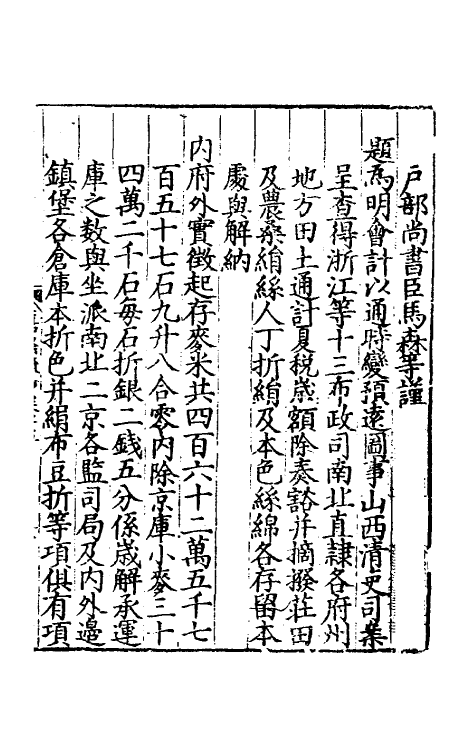 戶部尚書臣馬森等謹
題爲明會計以通時變預遠圖事山西清吏司案
呈查得浙江等十三布政司南北直隸各府州
地方田土通計夏稅歲額除奏豁并摘撥莊田
及農桑絹絲人丁折絹及本色絲綿各存留本
處與解納
內府外實徵起存麥米共四百六十二萬五千七
百五十七石九升八合零內除京庫小麥三十
四萬二千石每石折銀二錢五分係歲解承運
庫之數與坐派南北二京各監司局及內外邊
鎮堡各倉庫本折色并絹布豆折等項俱有項